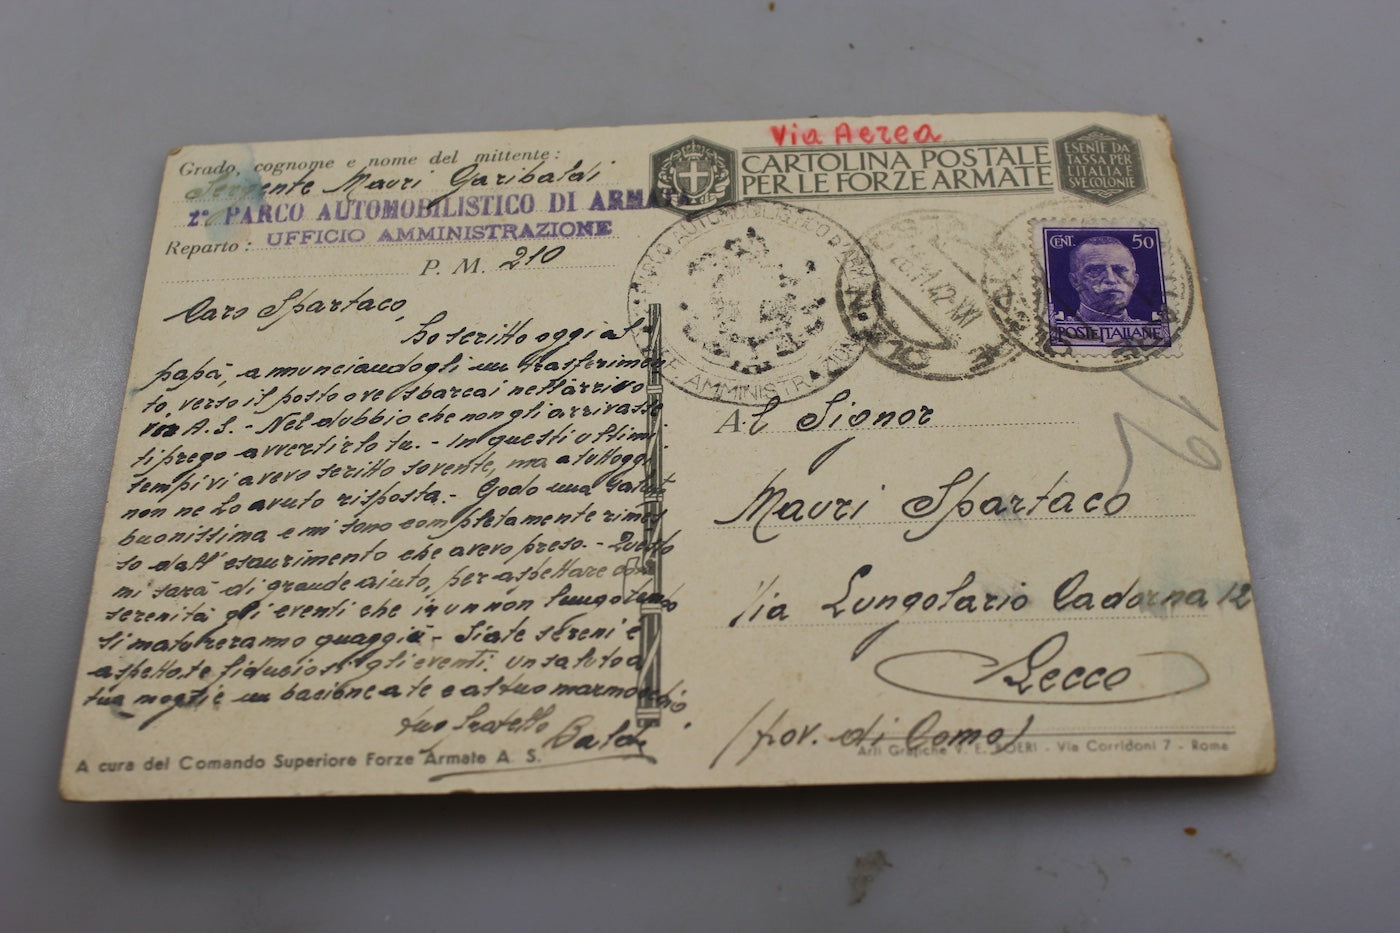 Via Aerea
Grado, cognome e nome del mittente:
Sergente Mauri Garibaldi
2° PARCO AUTOMOBILISTICO DI ARMATA
Reparto: UFFICIO AMMINISTRAZIONE
P. M. 210
CARTOLINA POSTALE
PER LE FORZE ARMATE
ESENTE DA
TASSA PER
L'ITALIA E
SVE COLONIE
PARCO AUTOMOBILISTICO D'ARMATA
AMMINISTRAZIONE
42-XXI
CENT. 50
POSTE ITALIANE
Caro Spartaco,
ho scritto oggi al
papà, annunciandogli un trasferimen
to, verso il posto ove sbarcai nell'arrivo
in A.S. - Nel dubbio che non gli arrivasse
ti prego avvertirlo tu. - In questi ultimi
tempi vi avevo scritto sovente, ma a tutt'oggi
non ne ho avuto risposta. - Godo una salute
buonissima e mi sono completamente rimes
so dall'esaurimento che avevo preso. - Questo
mi sarà di grande aiuto, per aspettare con
serenità gli eventi che in un non lungo tempo
si matureranno quaggiù - Siate sereni e
aspettate fiduciosi gli eventi. Un saluto a
tua moglie un bacione a te e al tuo marmocchio
tuo fratello
Baldi
Al Signor
Mauri Spartaco
Via Lungolario Cadorna 12
Lecco
(prov. di Como)
19
A cura del Comando Superiore Forze Armate A. S.
Arti Grafiche V. E. BOERI - Via Corridoni 7 - Roma